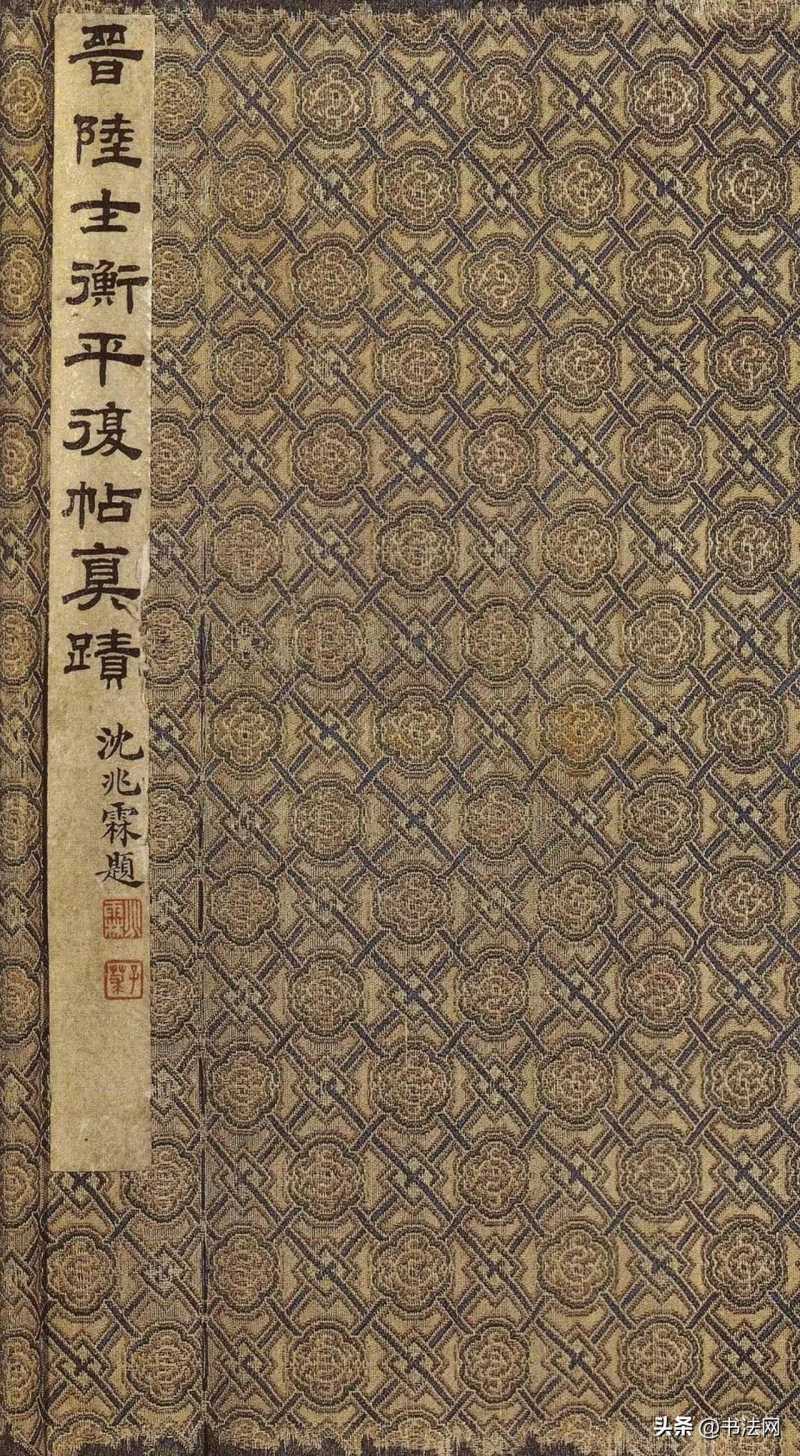 晉陸士衡平復帖真蹟
沈兆霖題
兆霖
子菉
头条 @书法网